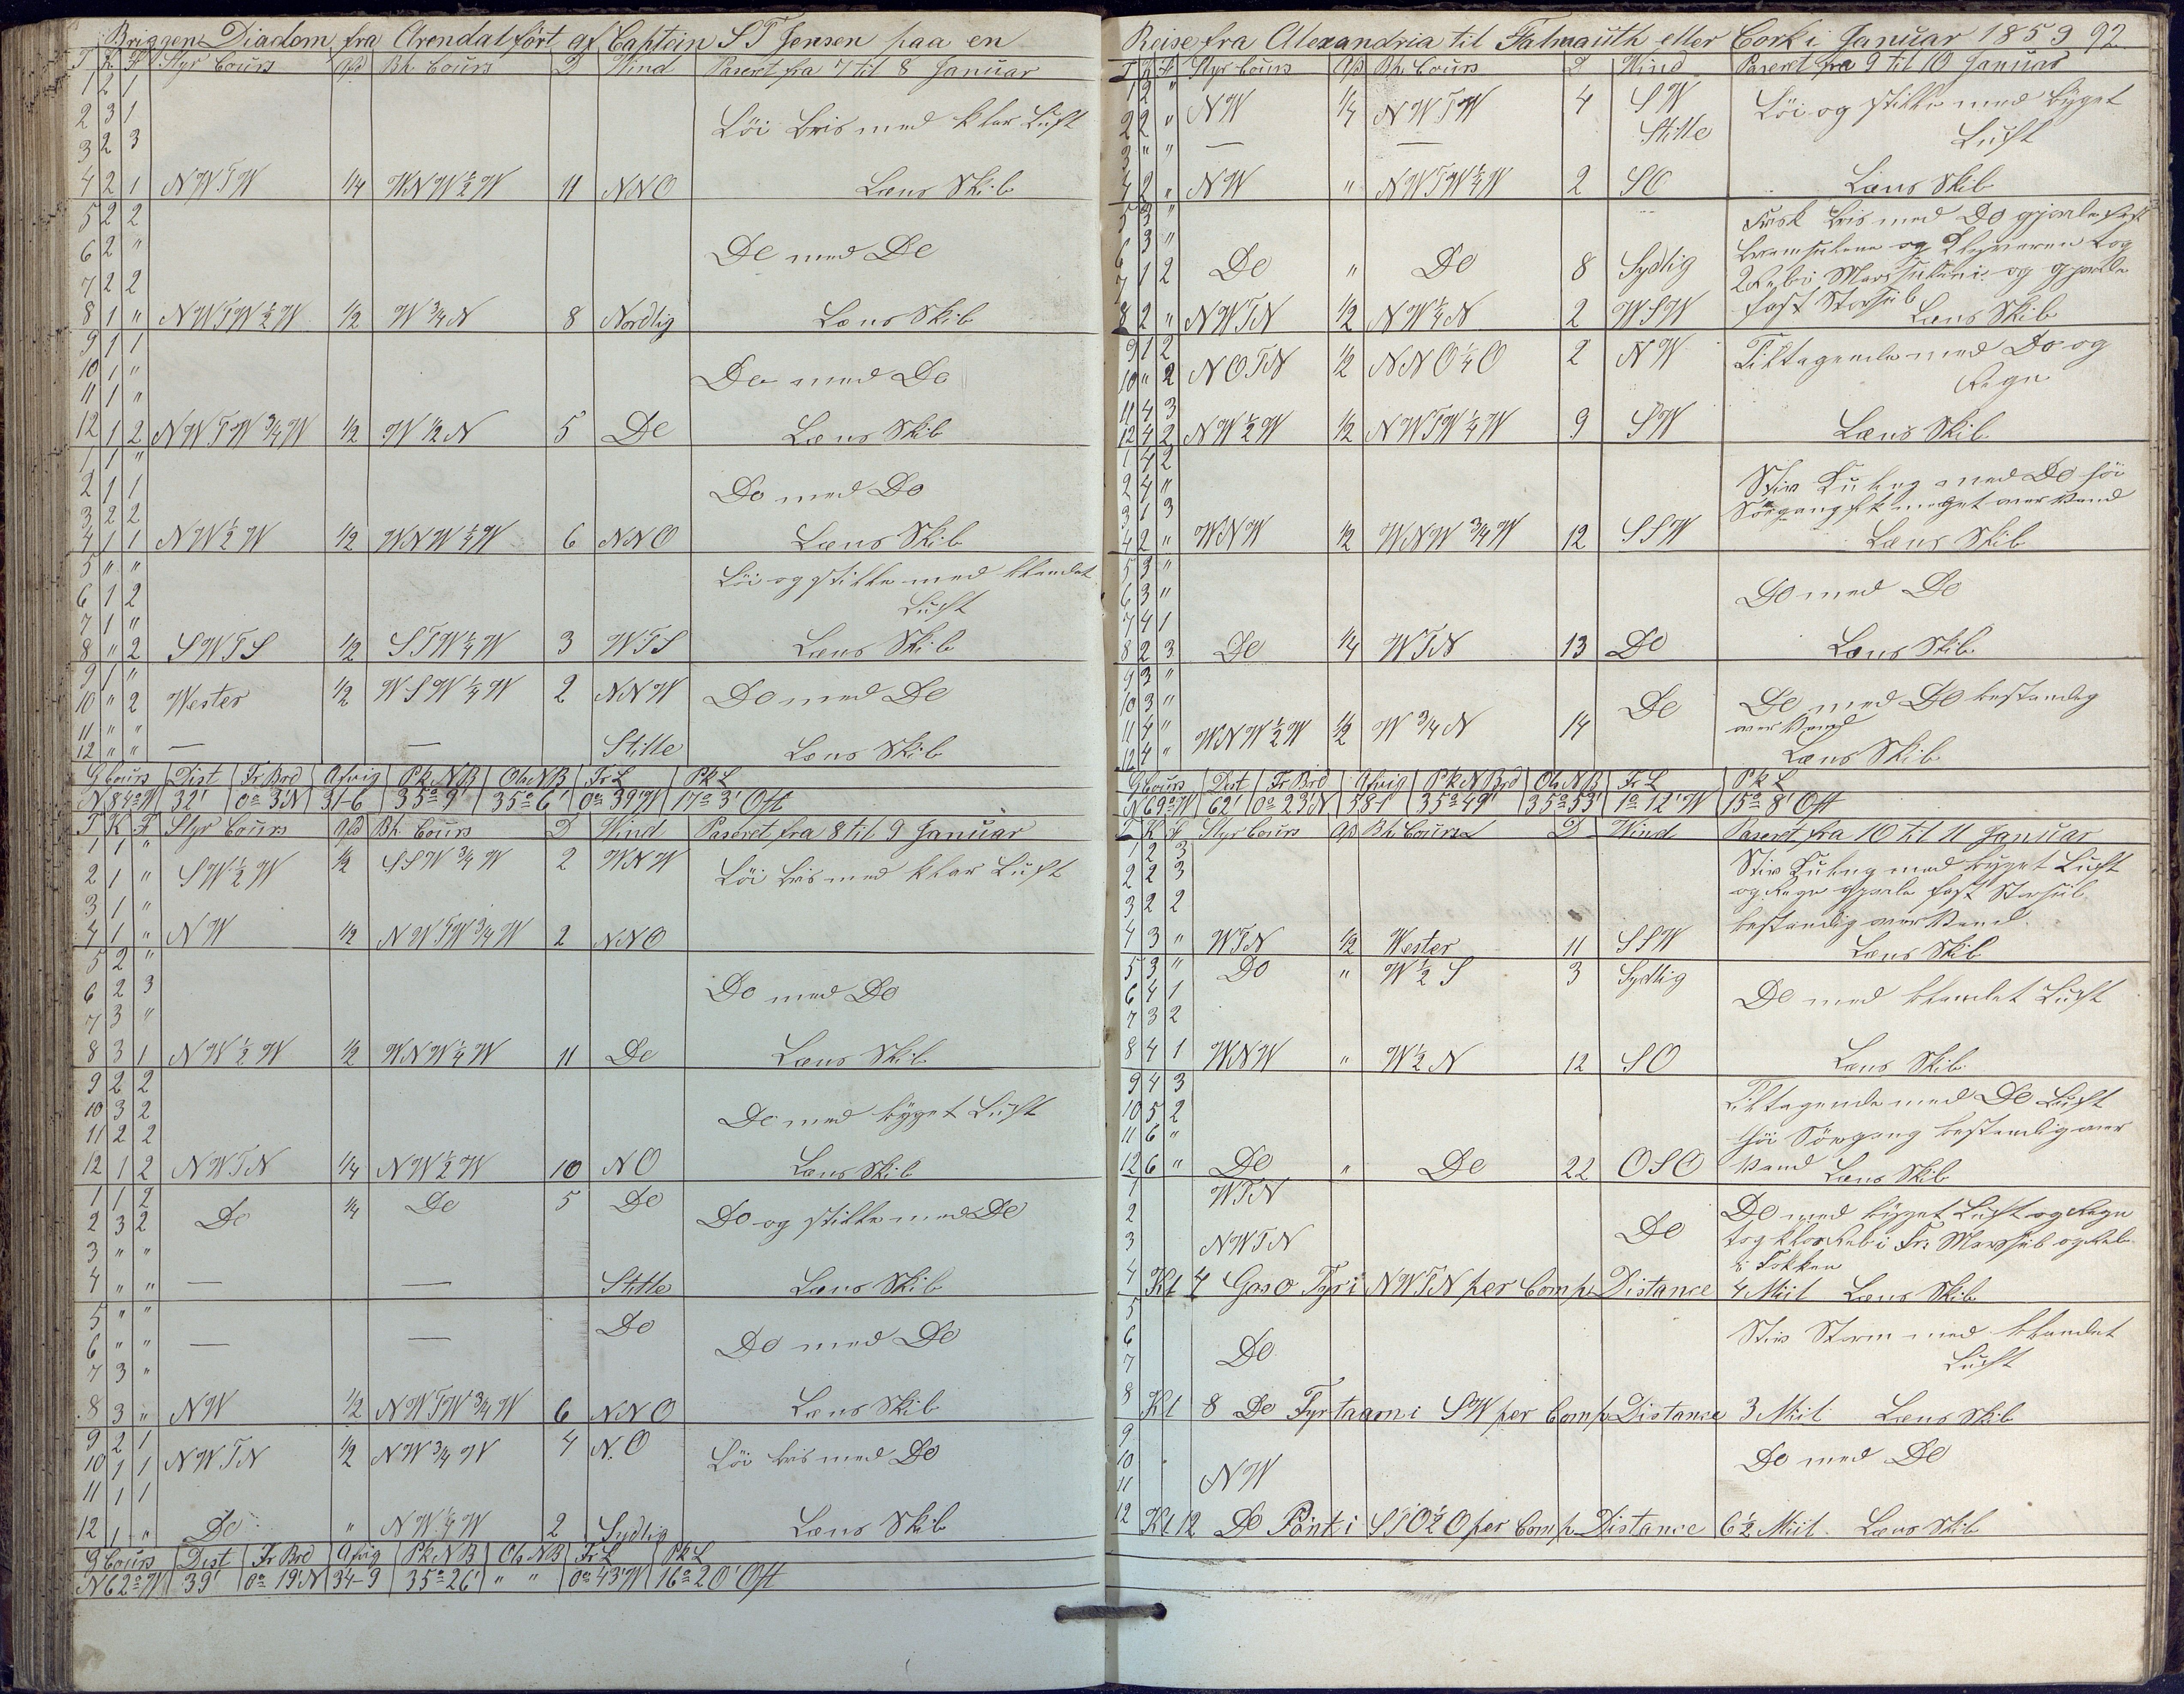 Briggen Diadem fra Arendal ført af Captein S T Jensen paa en
T K F Styr Cours Afd Bh Cours D Wind Paseret fra 7 til 8 Januar
1 2 1
2 3 1 Löi bris med klar Luft
3 2 3
4 2 1 NWTW 1/4 WNW½W 11 NNO Læns Skib
5 2 2
6 2 " Do med Do
7 2 2
8 1 " NWTW½W 1/2 W 3/4 N 8 Nordlig Læns Skib
9 1 1
10 1 " Do med Do
11 1 "
12 1 2 NWTW 3/4 W 1/2 W 1/2 N 5 Do Læns Skib
1 1 "
2 1 1 Do med Do
3 2 2
4 1 1 NW½W 1/2 WNW¼W 6 NNO Læns Skib
5 " " Löi og stille med blandet
6 1 2 Luft
7 1 "
8 " 2 SWTS 1/2 STW¼W 3 WTS Læns Skib
9 1 "
10 " 2 Wester 1/2 WSW¼W 2 NNW Do med Do
11 " "
12 " " — — Stille Læns Skib
G Cours Dist Fr Brd Afvig Pk NB Ob NB Fr L Pk L
N 84° W 32' 0° 3' N 31-6 35° 9' 35° 6' 0° 39' W 17° 3' Ost
T K F Styr Cours Afd Bh Cours D Wind Paseret fra 8 til 9 Januar
1 1 "
2 1 " SW½W 1/2 SSW 3/4 W 2 WNW Löi bris med klar Luft
3 1 "
4 1 " NW 1/2 NWTW 3/4 W 2 NNO
5 2 "
6 2 3 Do med Do
7 3 "
8 3 1 NW½W 1/2 WNW¼W 11 Do Læns Skib
9 2 2
10 3 2 Do med byget Luft
11 2 2
12 1 2 NWTN 1/4 NW½W 10 NO Læns Skib
1 1 2
2 3 2 Do 1/4 Do 5 Do Do og stille med Do
3 " "
4 " " — — Stille Læns Skib
5 " " Do
6 " " — — Do med Do
7 3 "
8 3 " NW 1/2 NWTW 3/4 W 6 NNO Læns Skib
9 2 1
10 1 1 NWTN 1/2 NW 3/4 W 4 N.O Löi bris med Do
11 1 1
12 1 " Do " NW¼W 2 Sydlig Læns Skib
G Cours Dist Fr Brd Afvig Pk NB Ob NB Fr L Pk L
N 62° W 39' 0° 19' N 34-9 35° 26' " " 0° 43' W 16° 20' Ost
Reise fra Alexandria til Falmauth eller Cork i Januar 1859 92
T K F Styr Cours Afd Bh Cours D Wind Paseret fra 9 til 10 Januar
1 2 "
2 2 " NW 1/4 NWTW 4 SW Löi og stille med byget
3 " " — — Stille Luft
4 2 " NW " NWTW¼W 2 SO Læns Skib
5 3 " Frisk bris med Do gjorde fast
6 3 " Bramseilene og Klyveren tog
7 1 2 Do " Do 8 Sydlig 2 Reb i Mersseilene og gjorde
8 2 " NWTN 1/2 NW¼N 2 WSW fast Storseil Læns Skib
9 1 2
10 " 2 NOTN 1/2 NNO¼O 2 NW Tiltagende med Do og
11 4 3 Regn
12 4 2 NW½W 1/2 NWTW¼W 9 SW Læns Skib
1 4 2
2 4 " Stiv Kuling med Do höi
3 1 3 Söegang fik meget over Vand
4 2 " WNW 1/2 WNW 3/4 W 12 SSW Læns Skib
5 3 "
6 3 " Do med Do
7 4 1
8 2 3 Do 1/4 WTN 13 Do Læns Skib
9 3 "
10 3 " Do Do med Do bestandig
11 4 " over Vand
12 4 " WNW½W 1/2 W 3/4 N 14 Læns Skib
G Cours Dist Fr Brd Afvig Pk N Brd Ob NB Fr L Pk L
N 69° W 62' 0° 23' N 58-1 35° 49' 35° 53' 1° 12' W 15° 8' Ost
T K F Styr Cours Afd Bh Cours D Wind Paseret fra 10 til 11 Januar
1 2 3 Stiv Kuling med byget Luft
2 2 3 og Regn gjorde fast Storseil
3 2 2 bestandig over Vand
4 3 " WTN 1/2 Wester 11 SSW Læns Skib
5 3 " Do " W½S 3 Sydlig
6 4 1 Do med blandet Luft
7 3 2
8 4 1 WNW " W½N 12 SO Læns Skib
9 4 3 Tiltagende med Do Luft
10 5 2
11 6 " höi Söegang bestandig over
12 6 " Do " Do 22 OSO Vand Læns Skib
1 WTN Do med byget Luft og Regn
2 Do tog klos Reb i For Mersseil og Reb
3 NWTN i Fokken
4 Kl 4 Goso Fyr i NWTN per Comp Distance 4 Miil Læns Skib
5
6 Stiv Storm med blandet
7 Do Luft
8 Kl 8 Do Fyrtaarn i SW per Comp Distance 3 Miil Læns Skib
9
10 Do med Do
11 NW
12 Kl 12 Do Pönt i STO½O per Comp Distance 6½ Miil Læns Skib